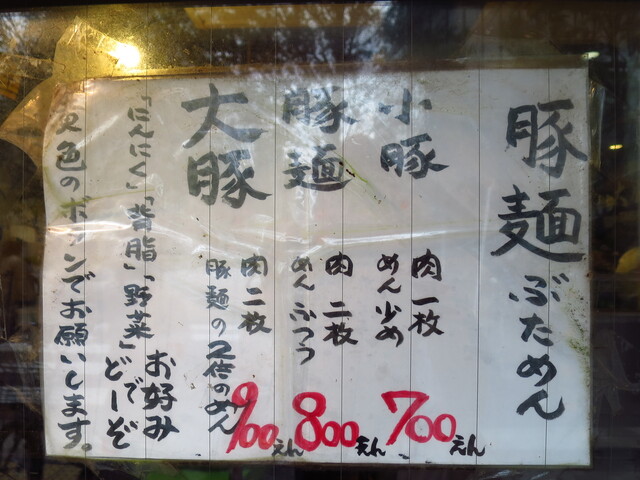 豚麺 ぶためん
小豚 肉一枚
めん少め
700えん
豚麺 肉二枚
めんふつう
800えん
大豚 肉二枚
豚麺の2倍のめん
900えん
「にんにく」「背脂」「野菜」お好みで
どーぞ
色のボタンでお願いします。